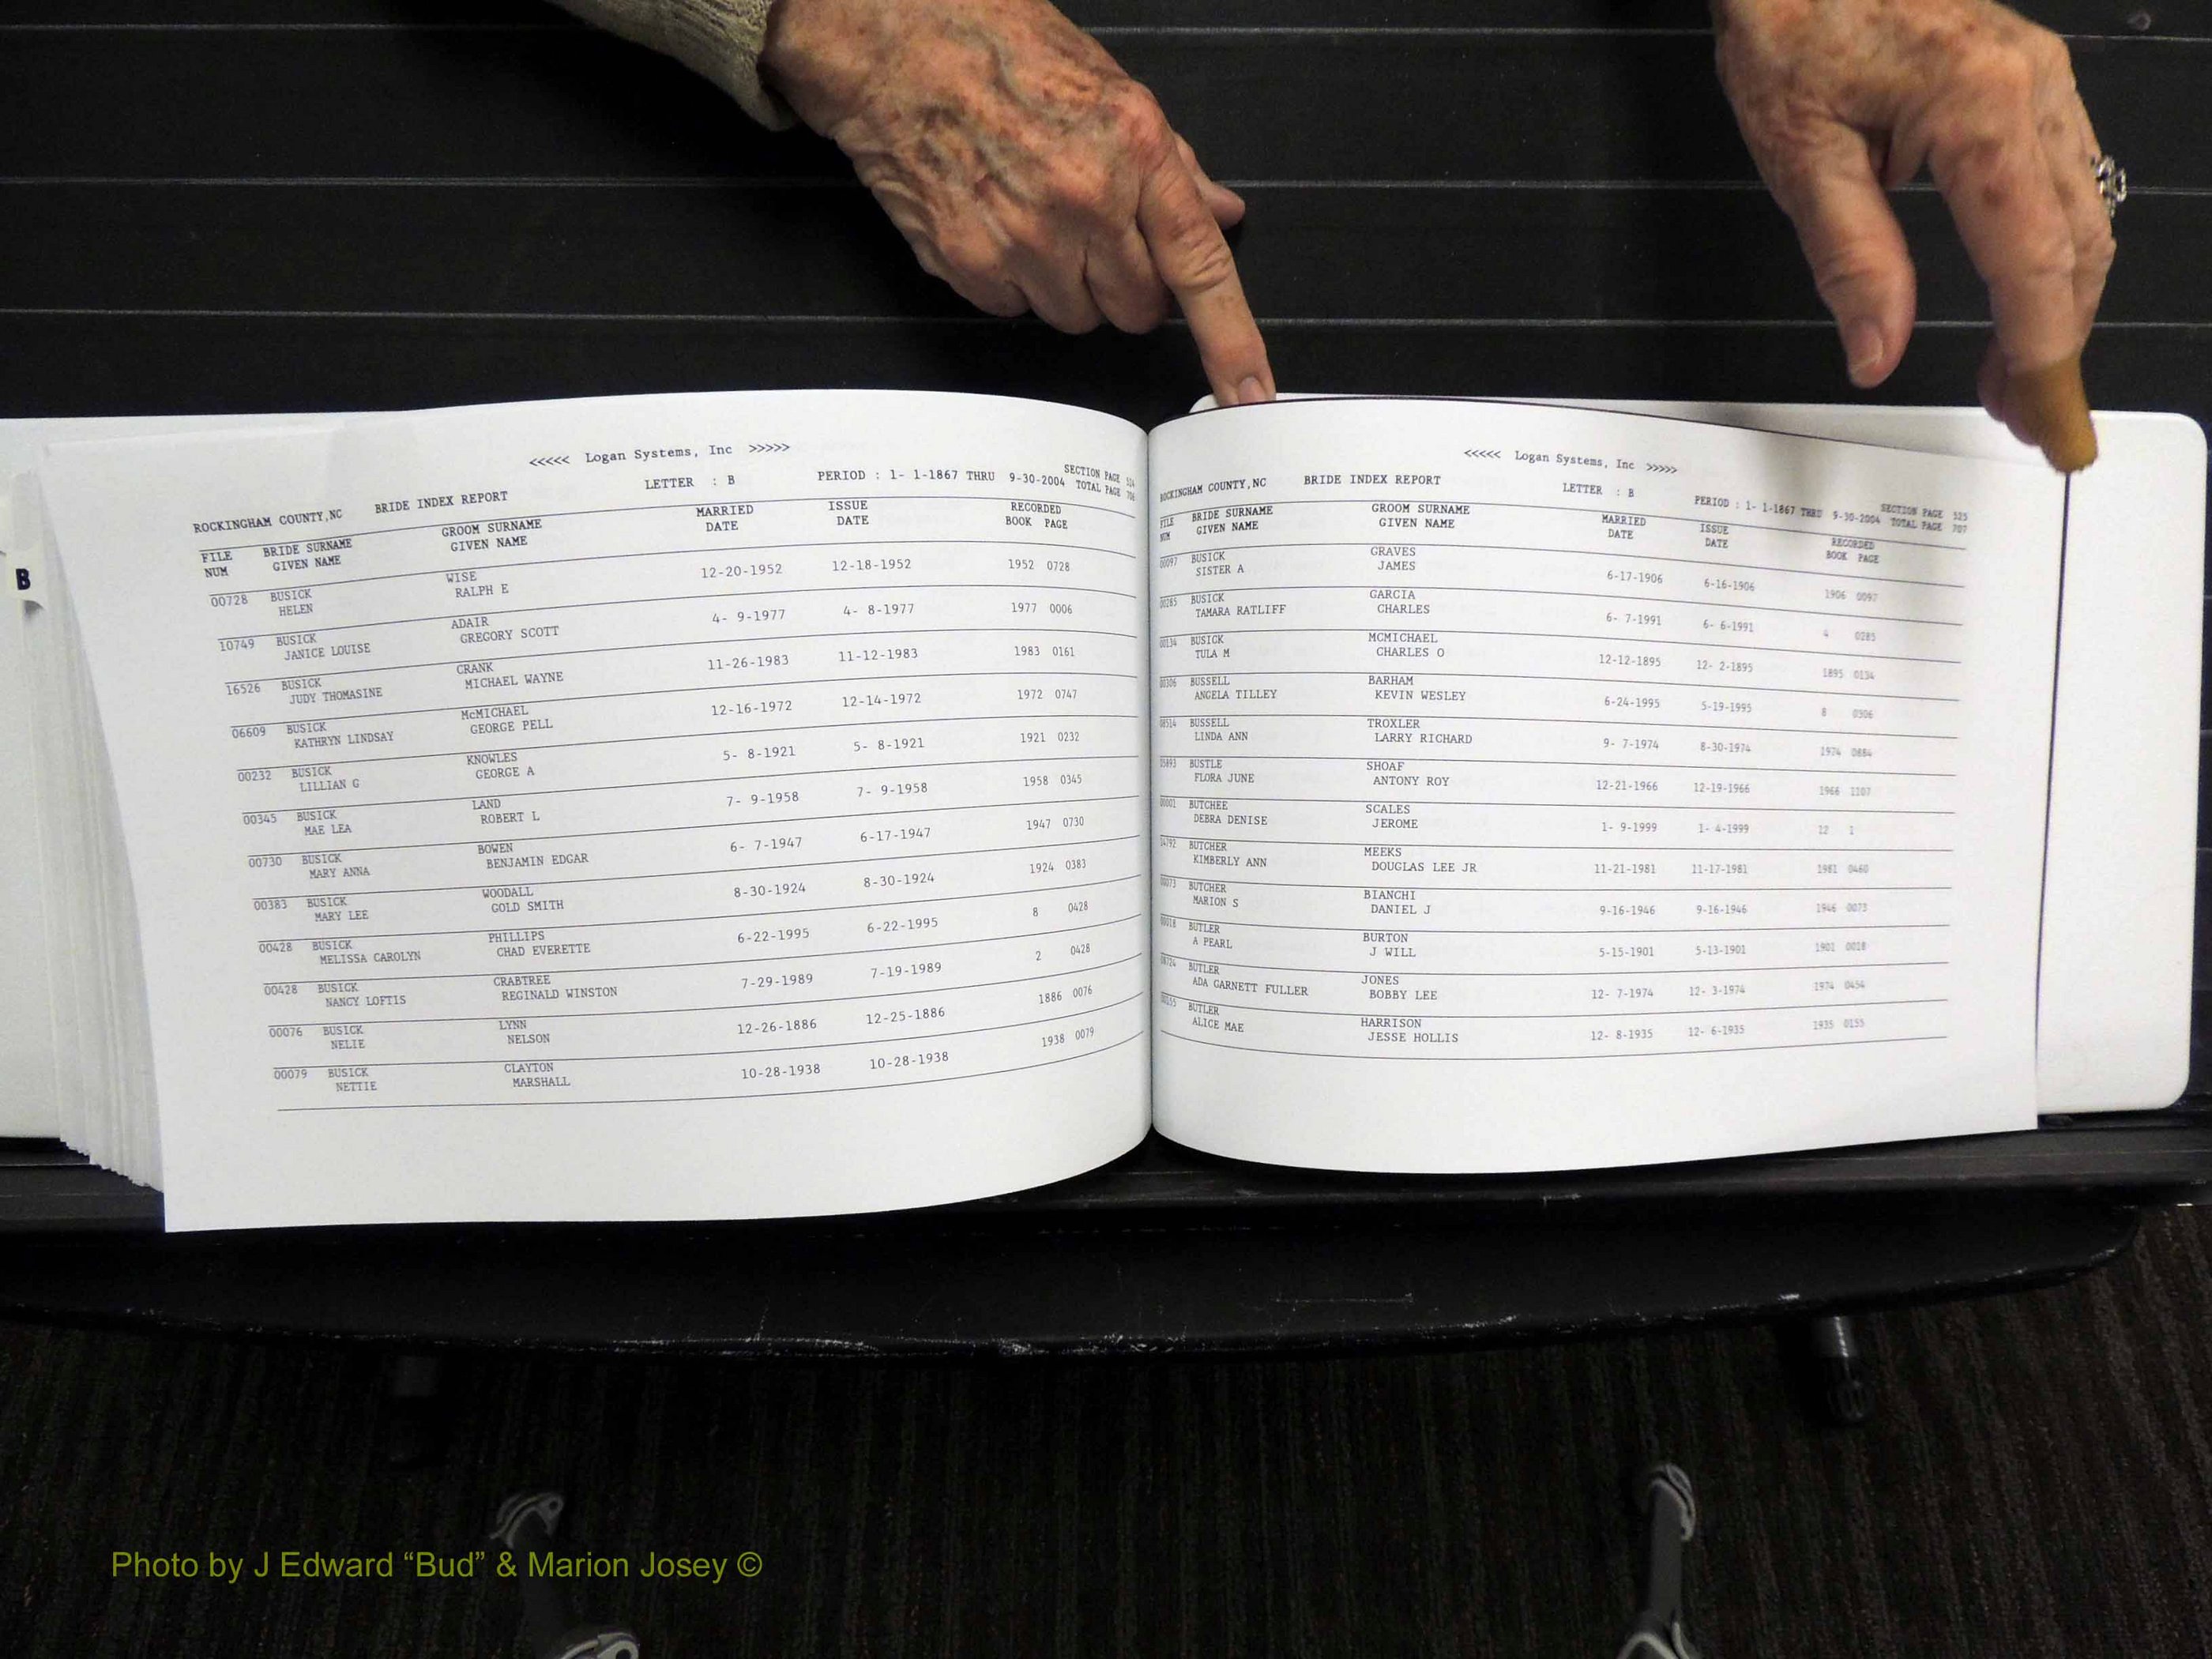 B
<<<<< Logan Systems, Inc >>>>>
ROCKINGHAM COUNTY,NC BRIDE INDEX REPORT LETTER : B PERIOD : 1- 1-1867 THRU 9-30-2004 SECTION PAGE
TOTAL PAGE
FILE BRIDE SURNAME GROOM SURNAME MARRIED ISSUE RECORDED
NUM GIVEN NAME GIVEN NAME DATE DATE BOOK PAGE
00728 BUSICK WISE 12-20-1952 12-18-1952 1952 0728
HELEN RALPH E
10749 BUSICK ADAIR 4- 9-1977 4- 8-1977 1977 0006
JANICE LOUISE GREGORY SCOTT
16526 BUSICK CRANK 11-26-1983 11-12-1983 1983 0161
JUDY THOMASINE MICHAEL WAYNE
06609 BUSICK McMICHAEL 12-16-1972 12-14-1972 1972 0747
KATHRYN LINDSAY GEORGE PELL
00232 BUSICK KNOWLES 5- 8-1921 5- 8-1921 1921 0232
LILLIAN G GEORGE A
00345 BUSICK LAND 7- 9-1958 7- 9-1958 1958 0345
MAE LEA ROBERT L
00730 BUSICK BOWEN 6- 7-1947 6-17-1947 1947 0730
MARY ANNA BENJAMIN EDGAR
00383 BUSICK WOODALL 8-30-1924 8-30-1924 1924 0383
MARY LEE GOLD SMITH
00428 BUSICK PHILLIPS 6-22-1995 6-22-1995 8 0428
MELISSA CAROLYN CHAD EVERETTE
00428 BUSICK CRABTREE 7-29-1989 7-19-1989 2 0428
NANCY LOFTIS REGINALD WINSTON
00076 BUSICK LYNN 12-26-1886 12-25-1886 1886 0076
NELIE NELSON
00079 BUSICK CLAYTON 10-28-1938 10-28-1938 1938 0079
NETTIE MARSHALL
<<<<< Logan Systems, Inc >>>>>
ROCKINGHAM COUNTY,NC BRIDE INDEX REPORT LETTER : B PERIOD : 1- 1-1867 THRU 9-30-2004 SECTION PAGE 525
TOTAL PAGE 707
FILE BRIDE SURNAME GROOM SURNAME MARRIED ISSUE RECORDED
NUM GIVEN NAME GIVEN NAME DATE DATE BOOK PAGE
00097 BUSICK GRAVES 6-17-1906 6-16-1906 1906 0097
SISTER A JAMES
00285 BUSICK GARCIA 6- 7-1991 6- 6-1991 4 0285
TAMARA RATLIFF CHARLES
00134 BUSICK MCMICHAEL 12-12-1895 12- 2-1895 1895 0134
TULA M CHARLES O
00306 BUSSELL BARHAM 6-24-1995 5-19-1995 8 0306
ANGELA TILLEY KEVIN WESLEY
08514 BUSSELL TROXLER 9- 7-1974 8-30-1974 1974
LINDA ANN LARRY RICHARD
BUSTLE SHOAF 12-21-1966 12-19-1966 1966 1107
FLORA JUNE ANTONY ROY
00001 BUTCHEE SCALES 1- 9-1999 1- 4-1999 12 1
DEBRA DENISE JEROME
BUTCHER MEEKS 11-21-1981 11-17-1981 1981 0460
KIMBERLY ANN DOUGLAS LEE JR
00073 BUTCHER BIANCHI 9-16-1946 9-16-1946 1946 0073
MARION S DANIEL J
00018 BUTLER BURTON 5-15-1901 5-13-1901 1901 0018
A PEARL J WILL
BUTLER JONES 12- 7-1974 12- 3-1974 1974 0454
ADA GARNETT FULLER BOBBY LEE
00155 BUTLER HARRISON 12- 8-1935 12- 6-1935 1935 0155
ALICE MAE JESSE HOLLIS
Photo by J Edward “Bud” & Marion Josey ©